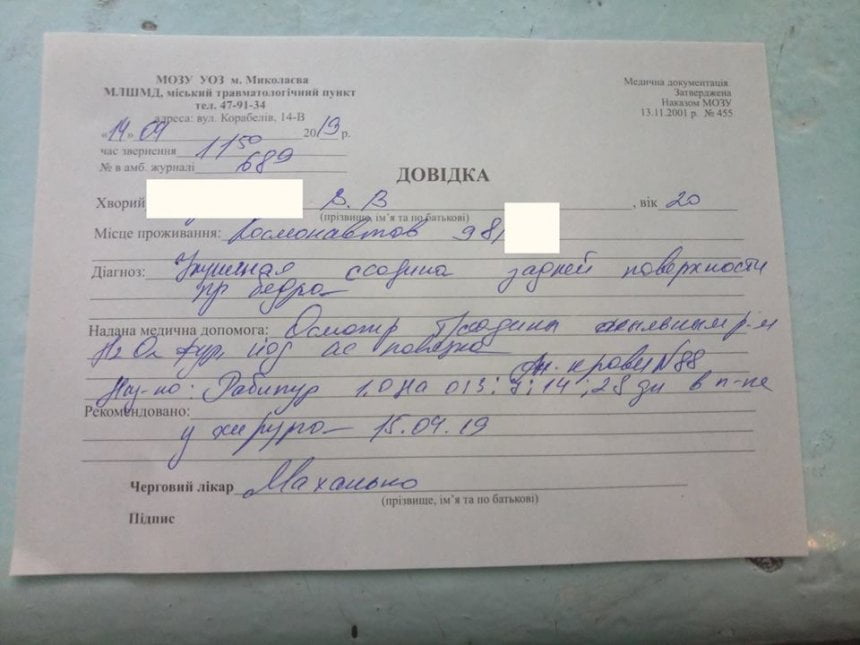 МОЗУ УОЗ м. Миколаєва
МЛШМД, міський травматологічний пункт
тел. 47-91-34
адреса: вул. Корабелів, 14-В
«14» 09 2019 р.
час звернення 11 50
№ в амб. журналі 689
Медична документація
Затверджена
Наказом МОЗУ
13.11.2001 р. № 455
ДОВІДКА
Хворий В. В , вік 20
(прізвище, ім’я та по батькові)
Місце проживання: Космонавтов 98/
Діагноз: Укушенная ссадина задней поверхности
пр бедра
Надана медична допомога: Осмотр
йод ас повязка
Ан. крови N 88
Наз-но: Рабипур 1.0 на 0; 3; 7; 14; 28 дн в п-ле
Рекомендовано:
у хирурга 15.09.19
Черговий лікар Маханько
(прізвище, ім’я та по батькові)
Підпис